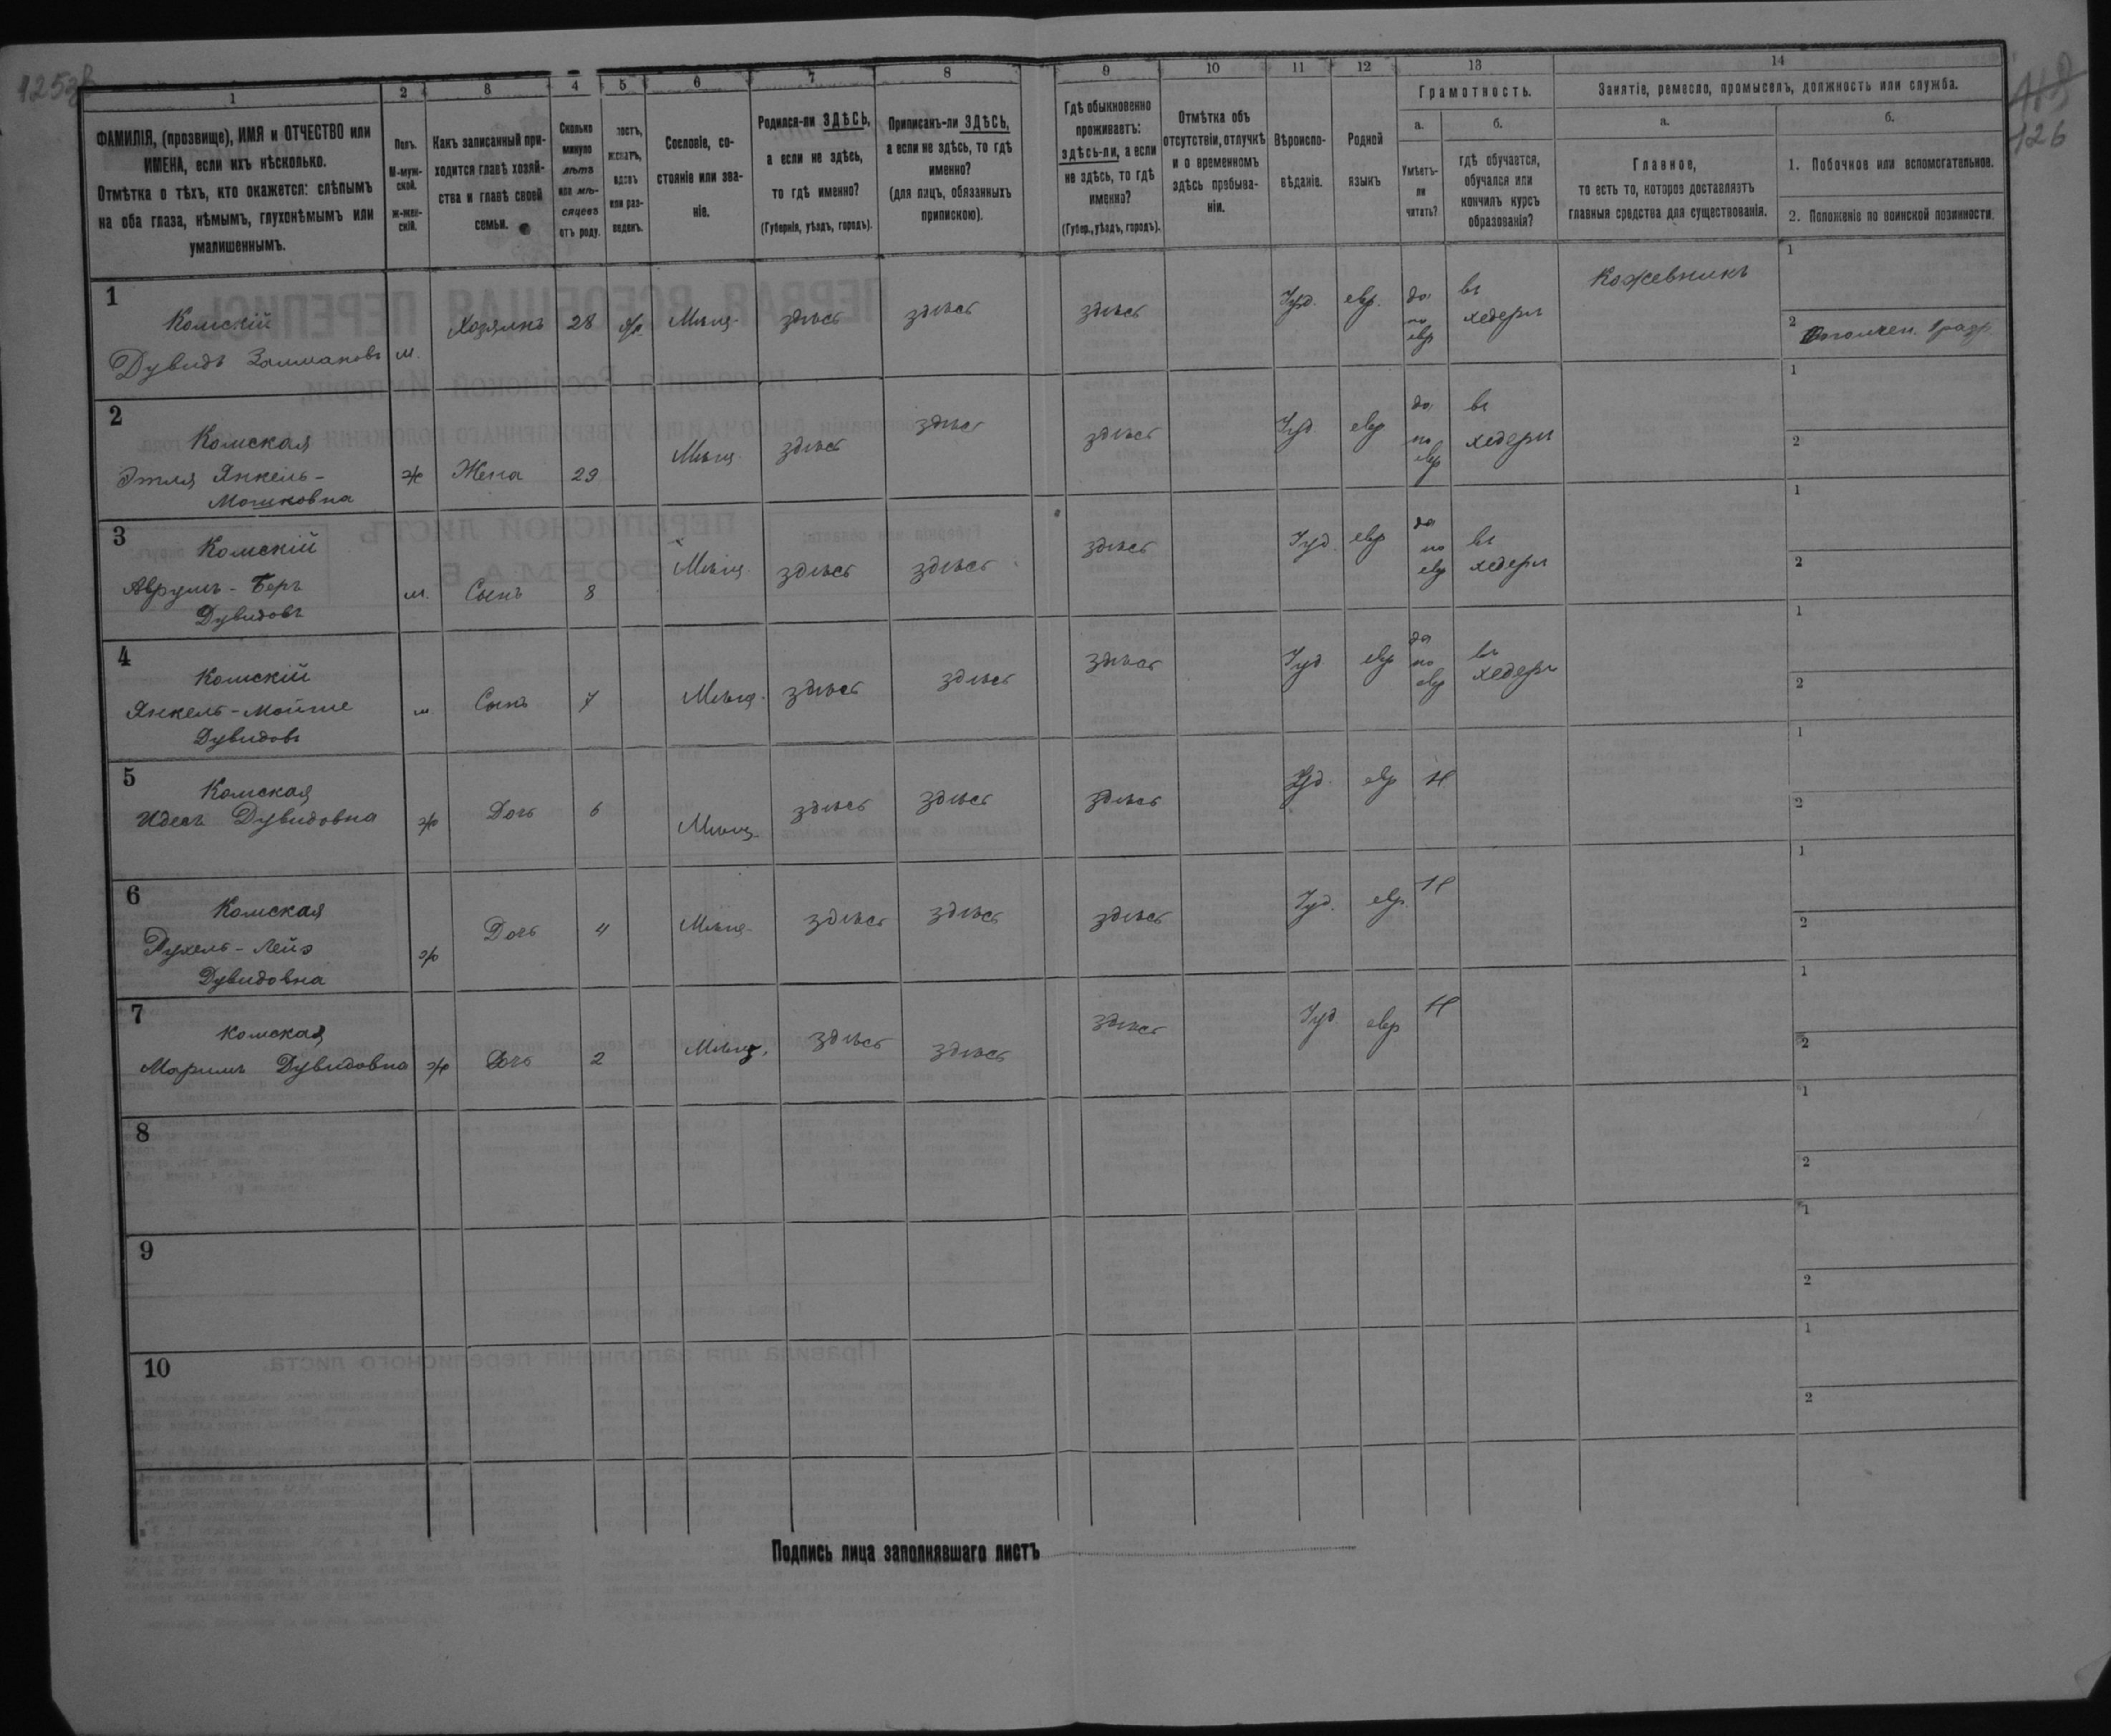 125об
126
1 2 3 4 5 6 7 8 9 10 11 12 13 14
ФАМИЛІЯ, (прозвище), ИМЯ и ОТЧЕСТВО или
ИМЕНА, если ихъ нѣсколько.
Отмѣтка о тѣхъ, кто окажется: слѣпымъ
на оба глаза, нѣмымъ, глухонѣмымъ или
умалишеннымъ.
Полъ.
М-муж-
ской.
ж-жен-
скій.
Какъ записанный при-
ходится главѣ хозяй-
ства и главѣ своей
семьи.
Сколько
минуло
лѣтъ
или мѣ-
сяцевъ
отъ роду.
лостъ,
женатъ,
вдовъ
или раз-
веденъ.
Сословіе, со-
стояніе или зва-
ніе.
Родился-ли ЗДѢСЬ,
а если не здѣсь,
то гдѣ именно?
(Губернія, уѣздъ, городъ).
Приписанъ-ли ЗДѢСЬ,
а если не здѣсь, то гдѣ
именно?
(для лицъ, обязанныхъ
припискою).
Гдѣ обыкновенно
проживаетъ:
здѣсь-ли, а если
не здѣсь, то гдѣ
именно?
(Губер., уѣздъ, городъ).
Отмѣтка объ
отсутствіи, отлучкѣ
и о временномъ
здѣсь пребыва-
ніи.
Вѣроиспо-
вѣданіе.
Родной
языкъ
Грамотность.
а.
Умѣетъ-
ли
читать?
б.
гдѣ обучается,
обучался или
кончилъ курсъ
образованія?
Занятіе, ремесло, промыселъ, должность или служба.
а.
Главное,
то есть то, которое доставляетъ
главныя средства для существованія.
б.
1. Побочное или вспомогательное.
2. Положеніе по воинской повинности.
1
Комскій
Дувидъ Залмановъ
м. Хозяинъ 28 Мѣщ. здѣсь здѣсь здѣсь Іуд. евр. да
по
евр
въ
хедерѣ
Кожевникъ
1
2 Ополчен. 1 разр.
2
Комская
Этля Янкель-
Мошковна
ж Жена 29 Мѣщ. здѣсь здѣсь здѣсь Іуд евр да
по
евр
въ
хедерѣ
1
2
3
Комскій
Аврумъ-Беръ
Дувидовъ
м. Сынъ 8 Мѣщ. здѣсь здѣсь здѣсь Іуд. евр да
по
евр
въ
хедерѣ
1
2
4
Комскій
Янкель-Мойше
Дувидовъ
м Сынъ 7 Мѣщ. здѣсь здѣсь здѣсь Іуд евр да
по
евр
въ
хедерѣ
1
2
5
Комская
Идесъ Дувидовна
ж Дочь 6 Мѣщ. здѣсь здѣсь здѣсь Іуд. евр Н
1
2
6
Комская
Рухель-Лейэ
Дувидовна
ж Дочь 4 Мѣщ. здѣсь здѣсь здѣсь Іуд. евр. Н
1
2
7
Комская
Маримъ Дувидовна
ж Дочь 2 Мѣщ. здѣсь здѣсь здѣсь Іуд. евр Н
1
2
8
1
2
9
1
2
10
1
2
Подпись лица заполнявшаго листъ